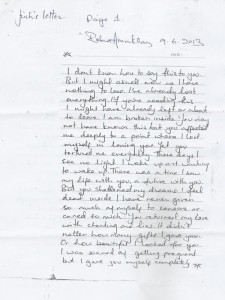 Jiah's letter Page 1
9.6.2013
I don't know how to say this to you
But I might as well now as I have
nothing to lose. I've already lost
everything. If you're reading this
I might have already left or about
to leave. I am broken inside. You may
not have known this but you affected
me deeply to a point where I lost
myself in loving you. Yet you
tortured me everyday. These days I
see no light I wake up not wanting
to wake up. There was a time I saw
my life with you, a future with you.
But you shattered my dreams. I feel
dead inside. I have never given
so much of myself to someone or
cared so much. You returned my love
with cheating and lies. It didn't
matter how many gifts I gave you
Or how beautiful I looked for you.
I was scared of getting pregnant
but I gave you myself completely